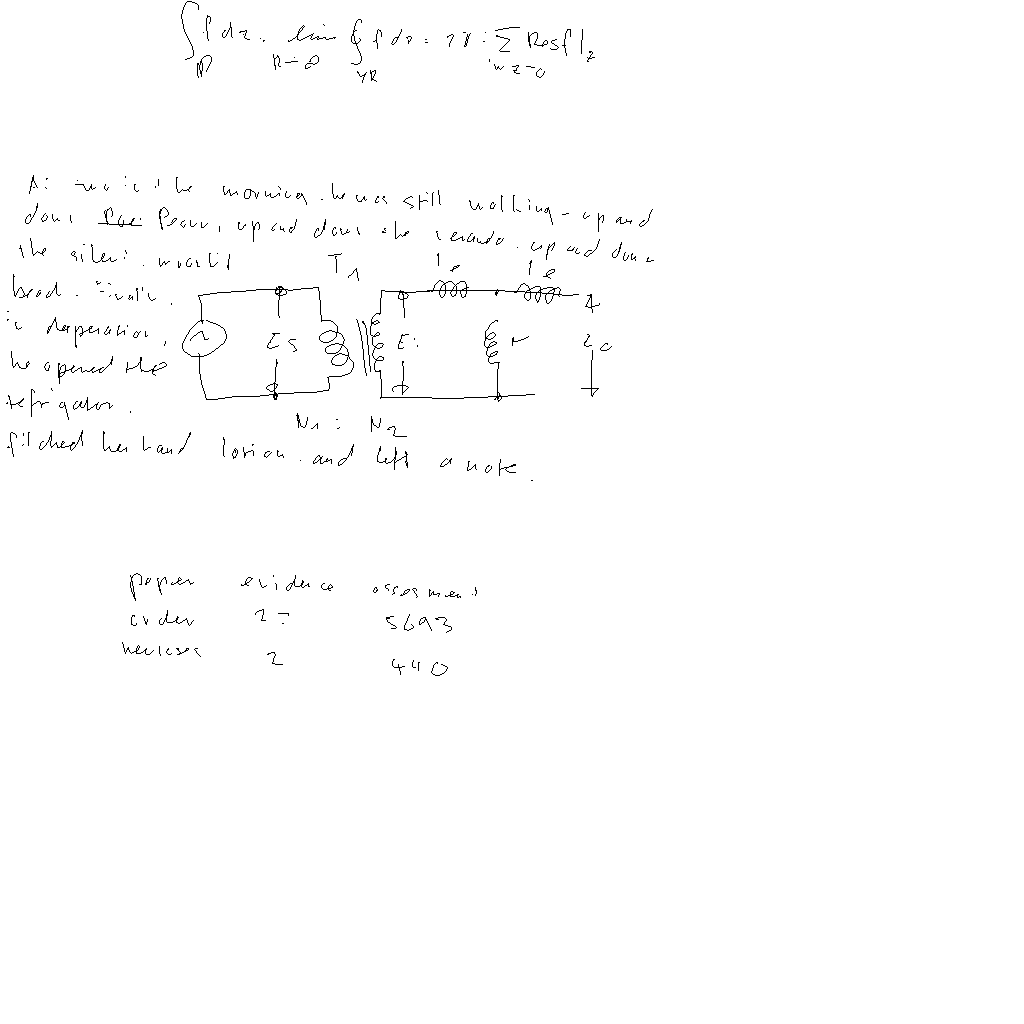 ∫ f dz = lim ∮ f dz = 2π i ∑ Res f |z
R R→∞ γR im z>0
At two in the morning, he was still walking - up and
down Poe Peavy, up and down the veranda, up and down
the silent, moonlit
bead. Finally,
in desperation,
he opened the
refrigator.
filched her hand lotion, and left a note.
T1 le le
Es Ei M Zo
N1 : N2
paper evidence assesment
order 27 5693
2 440